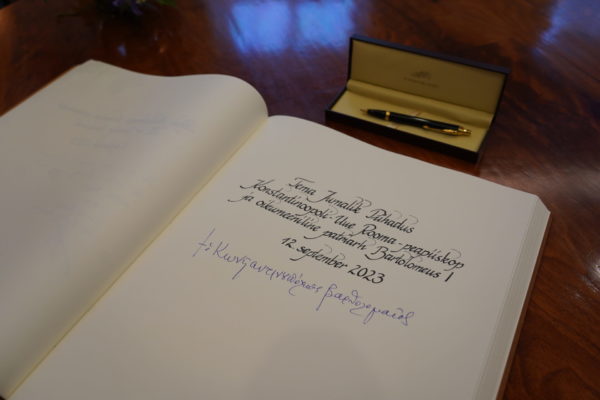 Tema Jumalik Pühadus
Konstantinoopoli-Uue Rooma-peapiiskop
ja oikumeeniline patriarh Bartolomeus I
12. september 2023
† ὁ Κωνσταντινουπόλεως Βαρθολομαῖος